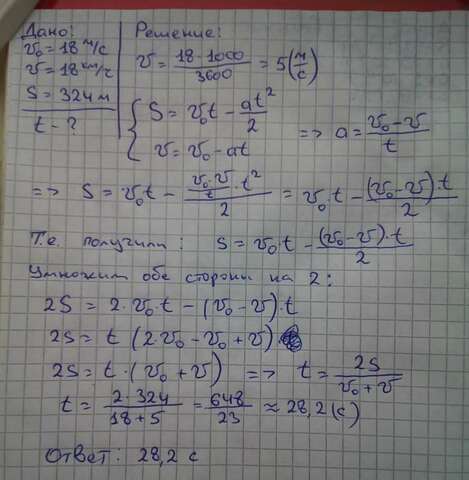 Дано:
v₀ = 18 м/с
v = 18 км/ч
S = 324 м
t - ?
Решение:
v = (18 · 1000)/3600 = 5 (м/с)
{ S = v₀t - at²/2
v = v₀ - at
=> a = (v₀ - v)/t
=> S = v₀t - ((v₀ v)/t · t²)/2 = v₀ · t - ((v₀ - v) · t)/2
Т.е. получили: S = v₀ · t - ((v₀ - v) · t)/2
Умножим обе стороны на 2:
2S = 2 · v₀ · t - (v₀ - v) · t
2S = t (2v₀ - v₀ + v)
2S = t · (v₀ + v) => t = 2S/(v₀ + v)
t = (2 · 324)/(18 + 5) = 648/23 ≈ 28,2 (с)
Ответ: 28,2 с